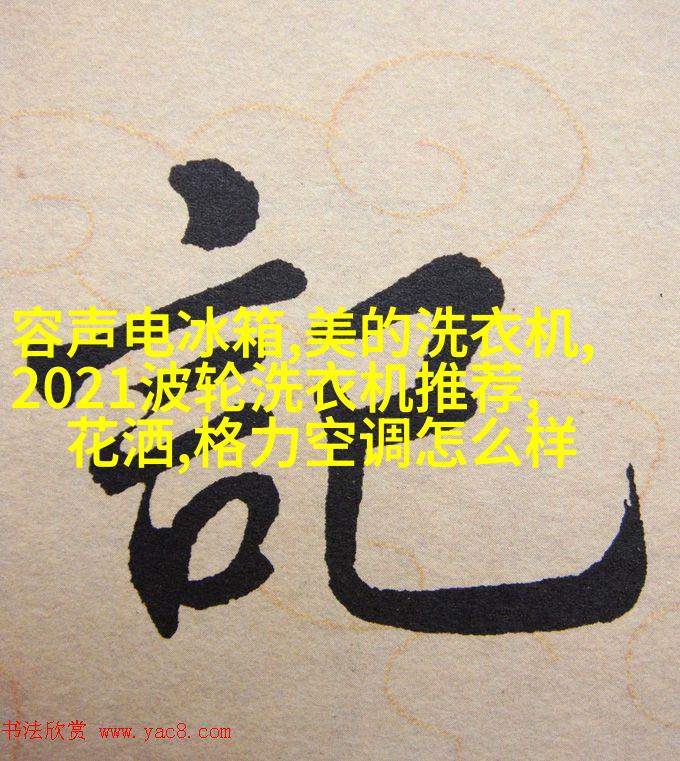 記
容声电冰箱,美的洗衣机,
2021波轮洗衣机推荐,
花洒,格力空调怎么样
书法欣赏 www.yac8.com